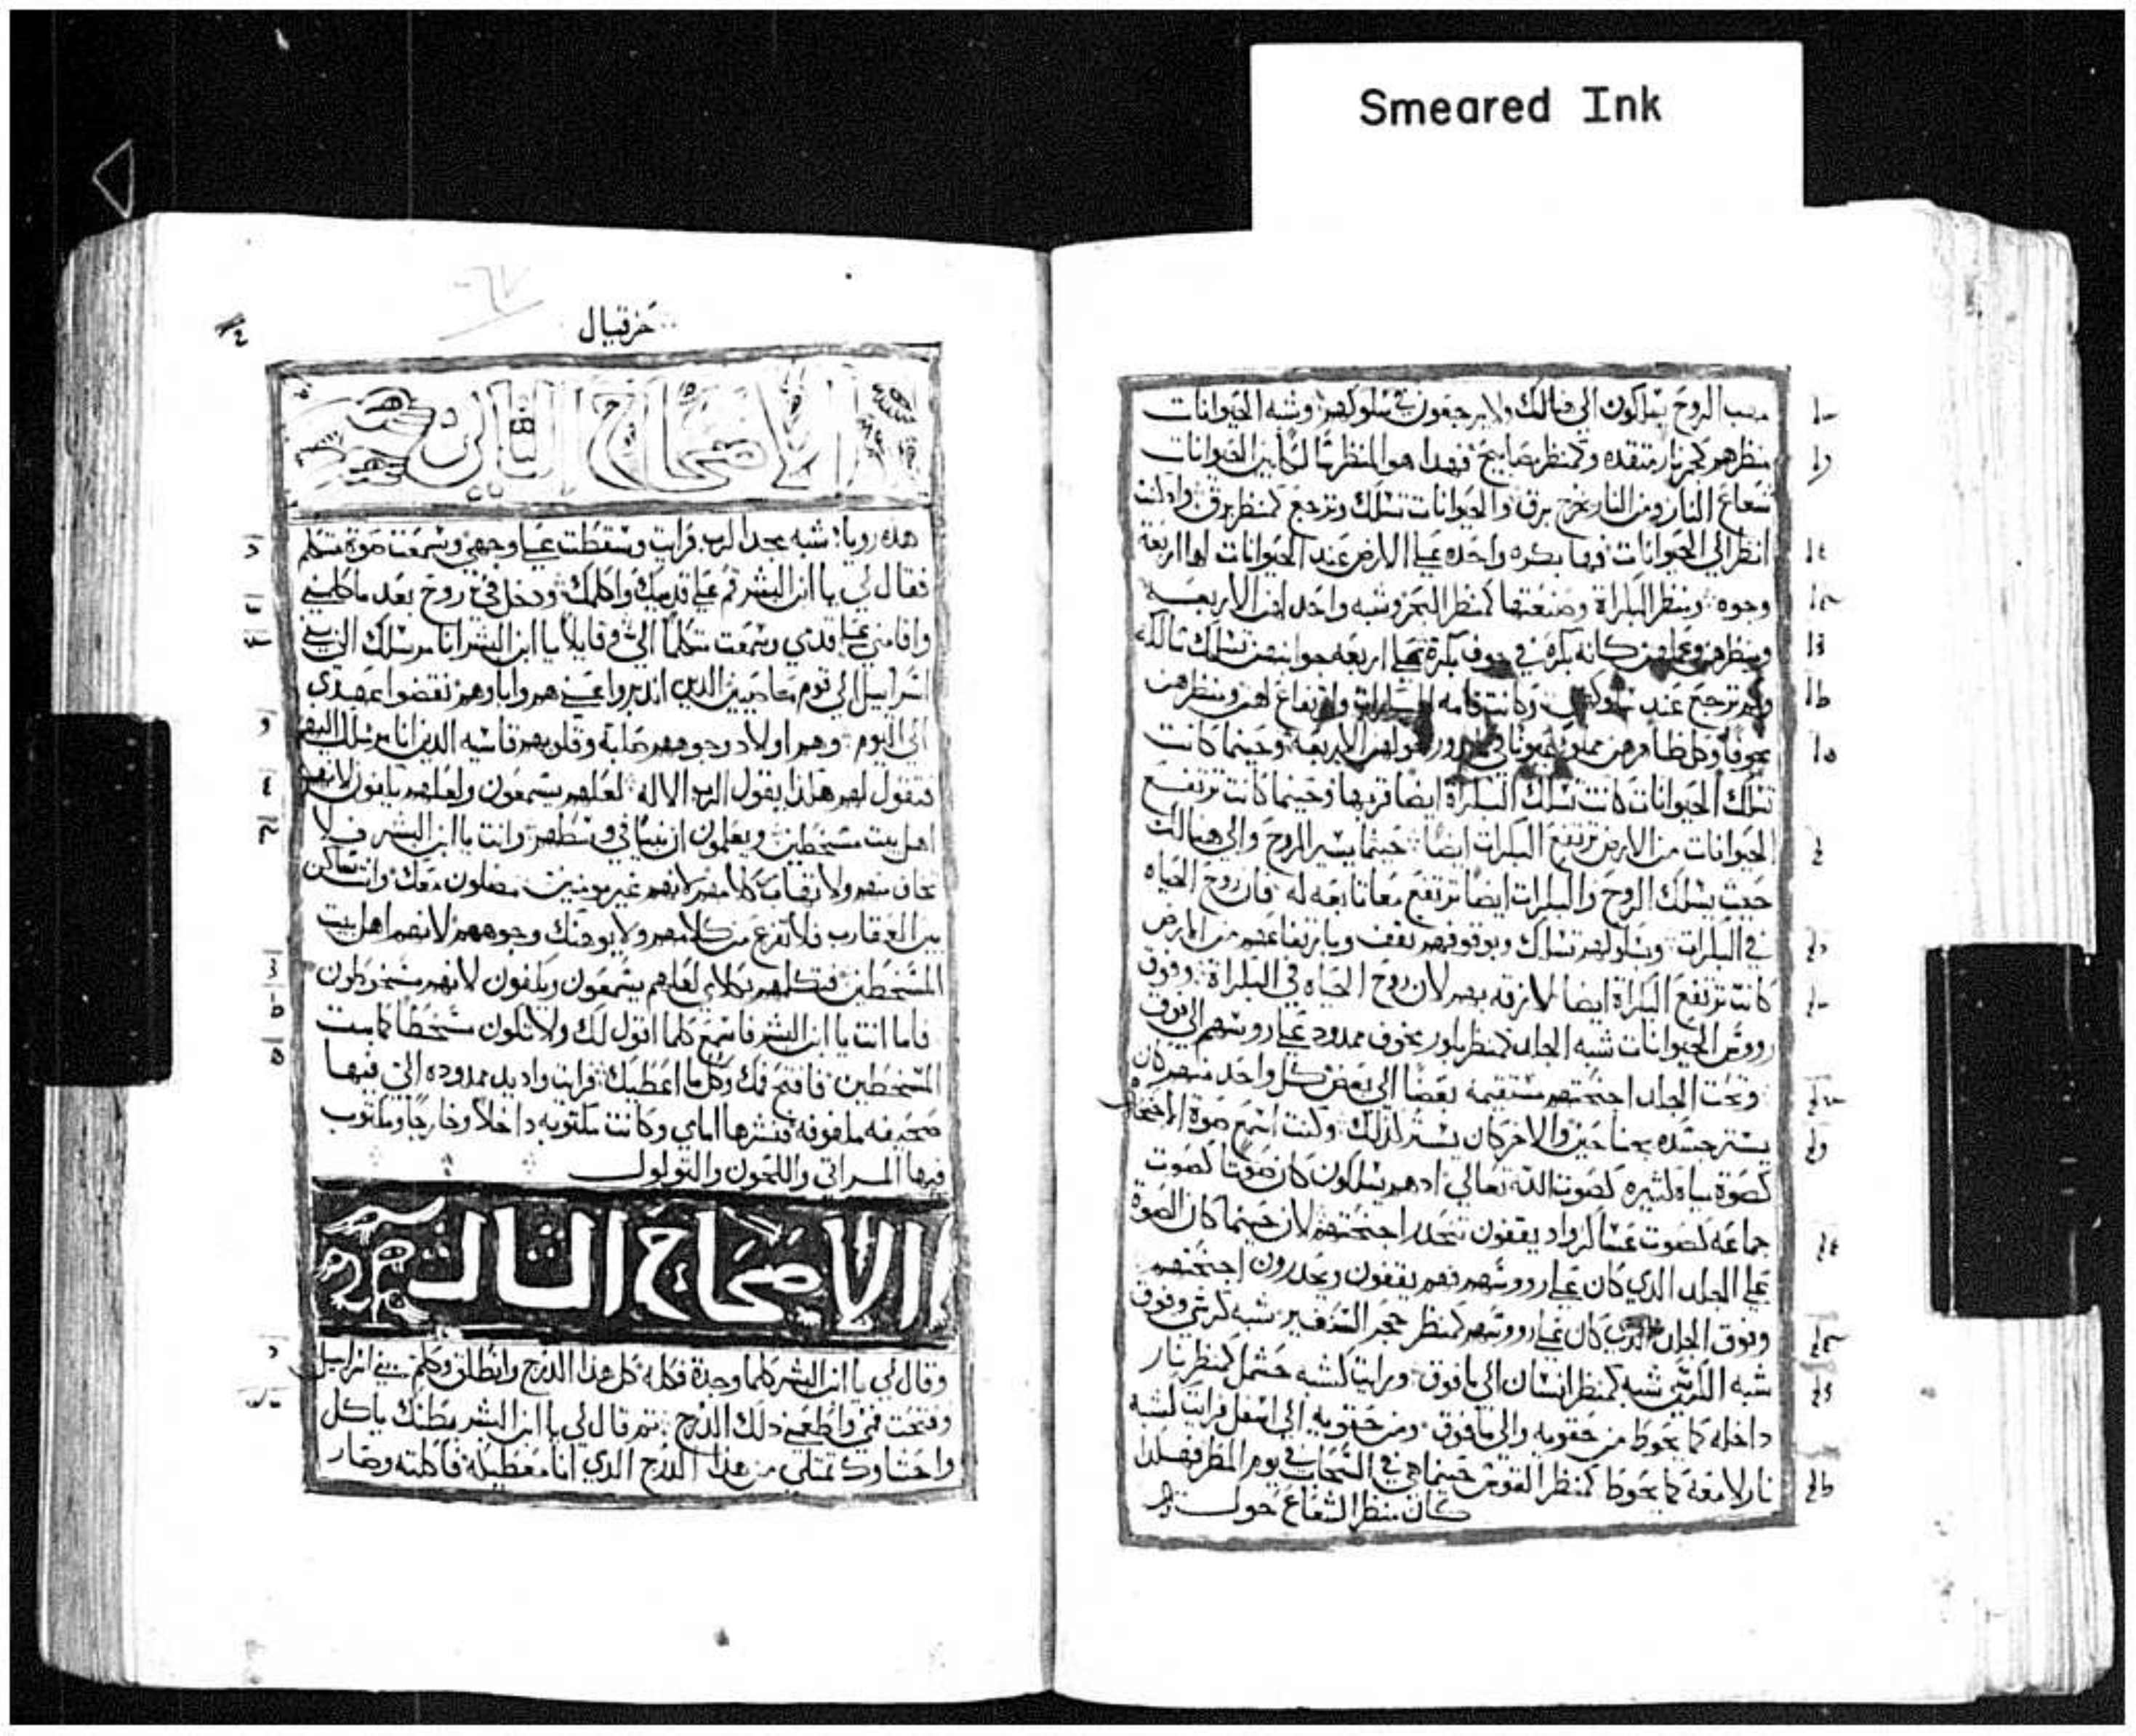 Smeared Ink
مهب الروح يسلكون الى هنالك ولا يرجعون في سلوكهم وشبه الحيوانات
منظرهم كجمر نار متقده وكمنظر مصابيح فهدا هو المنظر الحيوانات
شعاع النار ومن النار يخرج برق والحيوانات تسلك وترجع كمنظر برق واد كنت
انظر الى الحيوانات فها بكره واحده على الارض عند الحيوانات لها اربعة
وجوه ومنظر البكراة وصنعتها كمنظر البحر وشبه واحد لهن الاربعه
ومنظرهن وعملهن كانه بكرة في جوف بكرة على اربعه جوانبهن تسلك
ترجع عند وكانت قامه البكرات وارتفاع لهن ومنظرهن
مخوفا وكل اربعة وحيثما كانت
تسلك الحيوانات كانت تسلك البكراة ايضا قربها وحيثما كانت ترتفع
الحيوانات من الارض ترتفع البكرات ايضا حيثما يسير الروح والى هنالك
حيث يسلك الروح والبكرات ايضا ترتفع معا تابعه له فان روح الحياه
في البكرات وبسلوكهم تسلك وبوقوفهم تقف وبارتفاعهم من الارض
كانت ترتفع البكراة ايضا لازقه بهم لان روح الحياه في البكراة وفوق
رووس الحيوانات شبه الجلد كمنظر بلور مخوف ممدود على روسهم الى فوق
وتحت الجلد اجنحتهم مستقيمه بعضا الى بعض كل واحد منهم كان
يستر جسده بجناحين والاخر كان يستر كذلك وكنت اسمع صوة الاجنحة
كصوة مياه كثيره كصوت الله تعالى اد هم يسلكون كان صوتا كصوت
جماعه كصوت عسكر واد يقفون تنحدر اجنحتهم لان حينما كان الصوة
على الجلد الدي كان على رووسهم فهم يقفون ويحدرون اجنحتهم
وفوق الجلد الدي كان على رووسهم كمنظر حجر السفير شبه كرسي وفوق
شبه الكرسي شبه كمنظر انسان الى ما فوق ورايت كشبه حشمل كمنظر نار
داخله كما يحوط من حقويه والى ما فوق ومن حقويه الى اسفل رايت كشبه
نار لامعة كما يحوط كمنظر القوس حينما هي في السحاب في يوم المطر فهكدا
كان منظر الشعاع حوله
حزقيال
الاصحاح التاني
هده رويا شبه مجد الرب فرايت وسقطت على وجهي وسمعت صوة متكلم
فقال لي يا ابن البشر قم على قدميك واكلمك ودخل في روح بعد ما كلمني
واقامني على قدمي وسمعت متكلما الي وقايلا يا ابن البشر انا مرسلك الى بني
اسراييل الى قوم عاصيين الدين اندبروا عني هم واباوهم نقضوا عهدي
الى اليوم وهم اولاد وجوههم صلبة وقلوبهم قاسيه الدين انا مرسلك اليهم
فتقول لهم هكدا يقول الرب الاله لعلهم يسمعون ولعلهم لانهم
اهل بيت مسخطين ويعلمون ان نبيا في وسطهم وانت يا ابن البشر لا
تخاف منهم ولا كلامهم لانهم غير مومنين معك وانت ساكن
بين العقارب فلا تفزع من كلامهم ولا يوهنك وجوههم لانهم اهل بيت
المسخطين فتكلمهم بكلامي لعلهم يسمعون ويكفون لانهم مسخوطون
فاما انت يا ابن البشر فاسمع كلما اقول لك ولا تكون مسخطا كما بيت
المسخطين فافتح فمك وكل ما اعطيك فرايت واد يد ممدوده الي فيها
صحيفه ملفوفه فنشرها امامي وكانت مكتوبه داخلا وخارجا ومكتوب
فيها المراتي واللحون والتولول
الاصحاح التالت
وقال لي يا ابن البشر كلما وجدة فكله كل هدا الدرج وانطلق وكلم بني اسراييل
وفتحت فمي واطعمني دلك الدرج تم قال لي يا ابن البشر بطنك ياكل
واحشاوك تمتلي من هدا الدرج الدي انا معطيكه فاكلته وصار